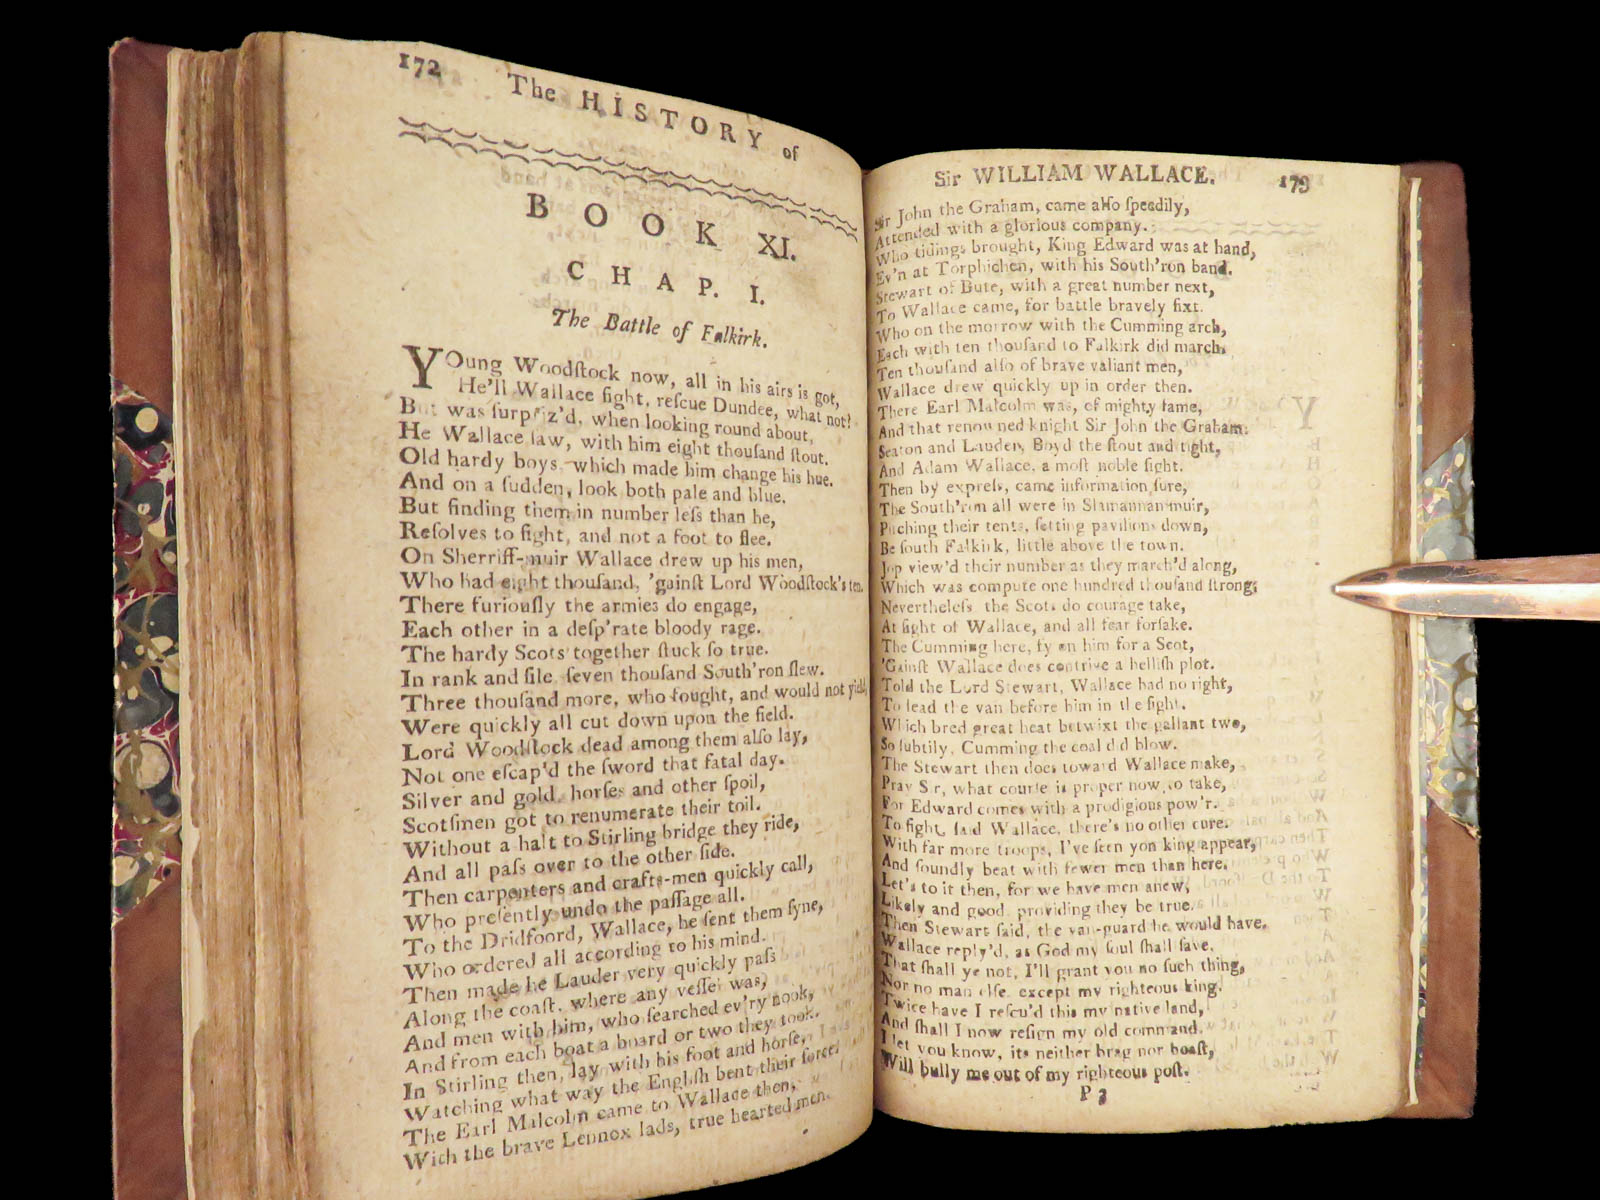 172
The HISTORY of
BOOK XI.
CHAP. I.
The Battle of Falkirk.
YOung Woodſtock now, all in his airs is got,
He'll Wallace fight, reſcue Dundee, what not?
But was ſurpriz'd, when looking round about,
He Wallace ſaw, with him eight thouſand ſtout.
Old hardy boys, which made him change his hue.
And on a ſudden, look both pale and blue.
But finding them in number leſs than he,
Reſolves to fight, and not a foot to flee.
On Sherriff-muir Wallace drew up his men,
Who had eight thouſand, 'gainſt Lord Woodſtock's ten.
There furiouſly the armies do engage,
Each other in a deſp'rate bloody rage.
The hardy Scots together ſtuck ſo true.
In rank and file ſeven thouſand South'ron ſlew.
Three thouſand more, who fought, and would not yield,
Were quickly all cut down upon the field.
Lord Woodſtock dead among them alſo lay,
Not one eſcap'd the ſword that fatal day.
Silver and gold, horſes and other ſpoil,
Scotſmen got to renumerate their toil.
Without a halt to Stirling bridge they ride,
And all paſs over to the other ſide.
Then carpenters and crafts-men quickly call,
Who preſently undo the paſſage all.
To the Dridfoord, Wallace, he ſent them ſyne,
Who ordered all according to his mind.
Then made he Lauder very quickly paſs
Along the coaſt, where any veſſel was,
And men with him, who ſearched ev'ry nook,
And from each boat a board or two they took.
In Stirling then, lay with his foot and horſe,
Watching what way the Engliſh bent their force.
The Earl Malcolm came to Wallace then,
With the brave Lennox lads, true hearted men.
Sir WILLIAM WALLACE. 173
Sir John the Graham, came alſo ſpeedily,
Attended with a glorious company.
Who tidings brought, King Edward was at hand,
Ev'n at Torphichen, with his South'ron band.
Stewart of Bute, with a great number next,
To Wallace came, for battle bravely fixt.
Who on the morrow with the Cumming arch,
Each with ten thouſand to Falkirk did march.
Ten thouſand alſo of brave valiant men,
Wallace drew quickly up in order then.
There Earl Malcolm was, of mighty fame,
And that renowned knight Sir John the Graham.
Seaton and Lauder, Boyd the ſtout and tight,
And Adam Wallace, a moſt noble ſight.
Then by expreſs, came information ſure,
The South'ron all were in Slamannan-muir,
Pitching their tents, ſetting pavilions down,
Be ſouth Falkirk, little above the town.
Jop view'd their number as they march'd along,
Which was compute one hundred thouſand ſtrong;
Nevertheleſs the Scots do courage take,
At ſight of Wallace, and all fear forſake.
The Cumming here, fy on him for a Scot,
'Gainſt Wallace does contrive a helliſh plot.
Told the Lord Stewart, Wallace had no right,
To lead the van before him in the fight.
Which bred great heat betwixt the gallant two,
So ſubtily, Cumming the coal did blow.
The Stewart then does toward Wallace make,
Pray Sir, what courſe is proper now to take,
For Edward comes with a prodigious pow'r.
To fight, ſaid Wallace, there's no other cure.
With far more troops, I've ſeen yon king appear,
And ſoundly beat with fewer men than here.
Let's to it then, for we have men anew,
Likely and good, providing they be true.
Then Stewart ſaid, the van-guard he would have,
Wallace reply'd, as God my ſoul ſhall ſave,
That ſhall ye not, I'll grant you no ſuch thing,
Nor no man elſe, except my righteous king.
Twice have I reſcu'd this my native land,
And ſhall I now reſign my old command.
I let you know, its neither brag nor boaſt,
Will bully me out of my righteous poſt.
P 3